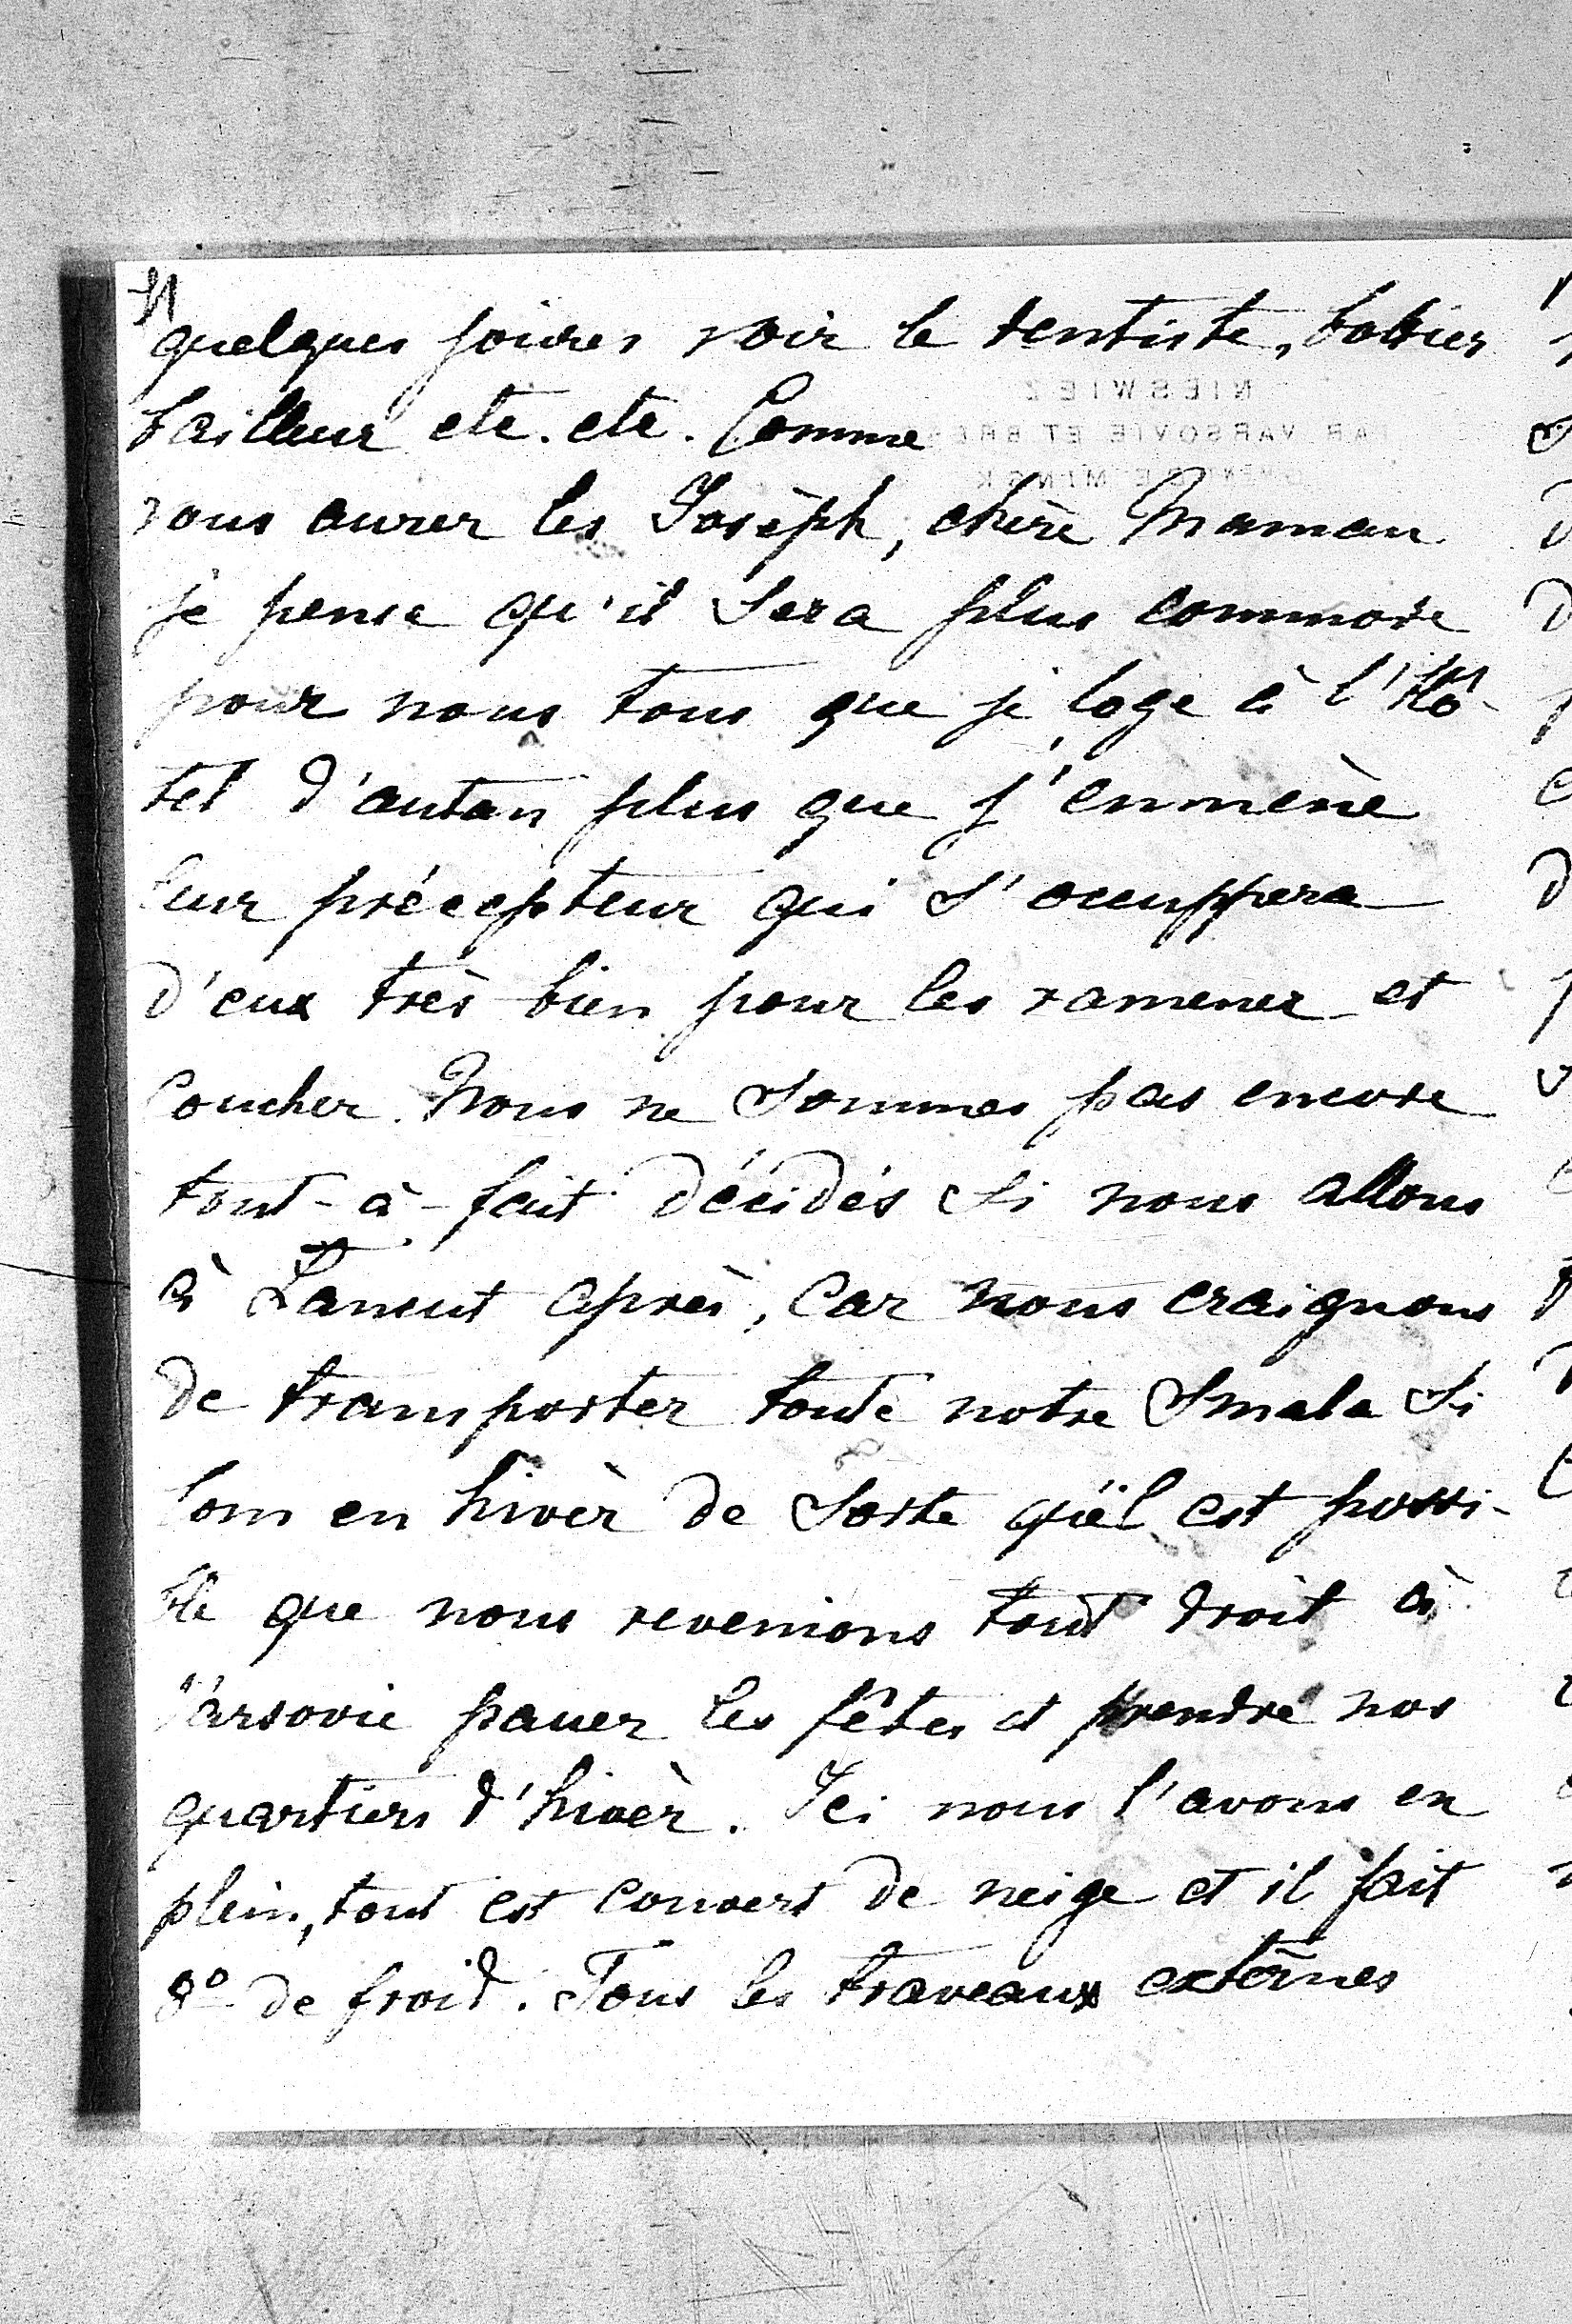 quelques foires voir le dentiste, bottier
tailleur etc. etc. Comme
vous aurez les Josèph, chère Maman
je pense qu'il sera plus commode
pour nous tous que je loge à l'Hô-
tel d'autan plus que j'enmène
leur précepteur qui s'occuppera
d'eux très bien pour les ramener et
coucher. Nous ne sommes pas encore
tout-à-fait décidés si nous allons
à Łancut après, car nous craignons
de transporter toute notre smala si
loin en hivèr de sorte qu'il est possi-
ble que nous revenions tout droit à
Varsovie passer les fêtes et prendre nos
quartiers d'hivèr. Ici nous l'avons en
plein, tout est couvert de neige et il fait
8° de froid. Tous les traveaux externes
NIESWIEZ
PAR VARSOVIE ET BRE
MINSK